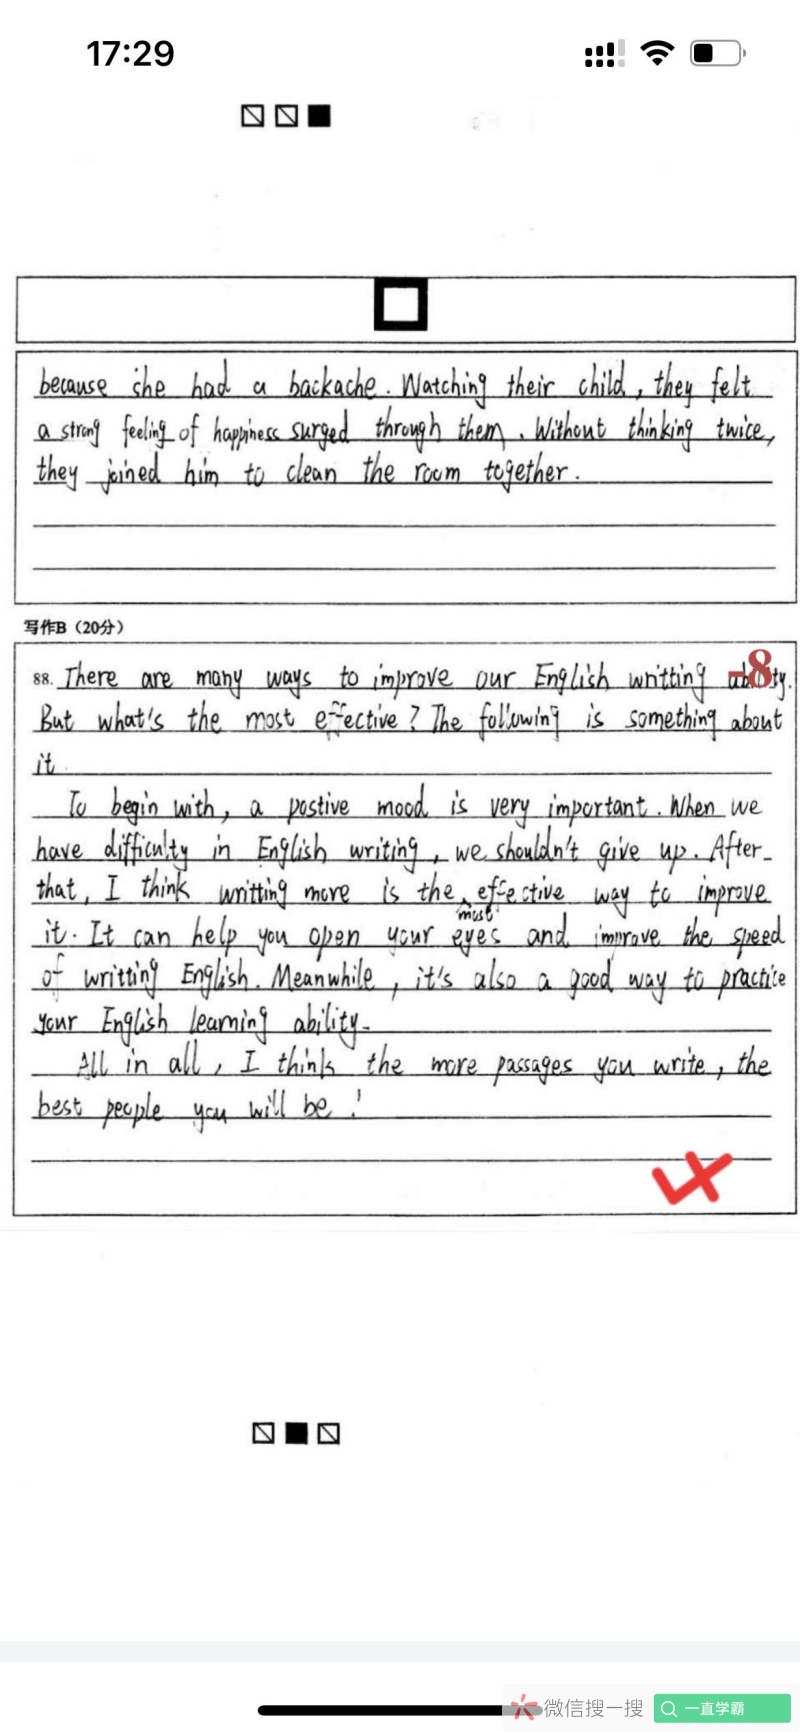 17:29
because she had a backache. Watching their child, they felt
a strong feeling of happiness surged through them. Without thinking twice,
they joined him to clean the room together.
写作B（20分）
-8
88. There are many ways to improve our English writting ability.
But what's the most effective? The following is something about
it.
To begin with, a postive mood is very important. When we
have difficulty in English writing, we shouldn't give up. After
that, I think writting more is the effective way to improve
most
it. It can help you open your eyes and improve the speed
of writting English. Meanwhile, it's also a good way to practice
your English learning ability.
All in all, I think the more passages you write, the
best people you will be!
微信搜一搜
一直学霸